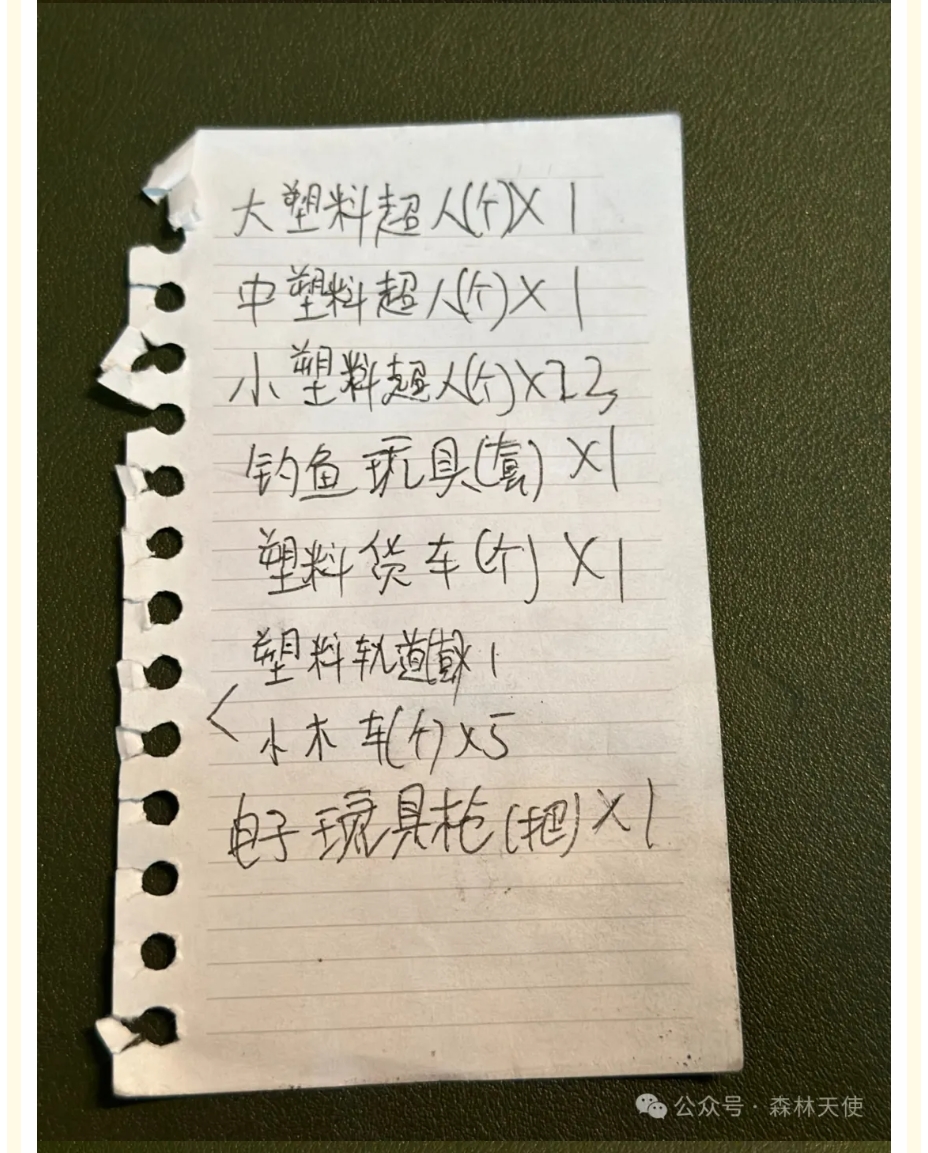 大塑料超人(个)X 1
中塑料超人(个)X 1
小塑料超人(个)X22
钓鱼玩具(套) X1
塑料货车(个) X1
塑料轨道(套)X1
小木车(个)X5
电子玩具枪(把)X1
公众号·森林天使